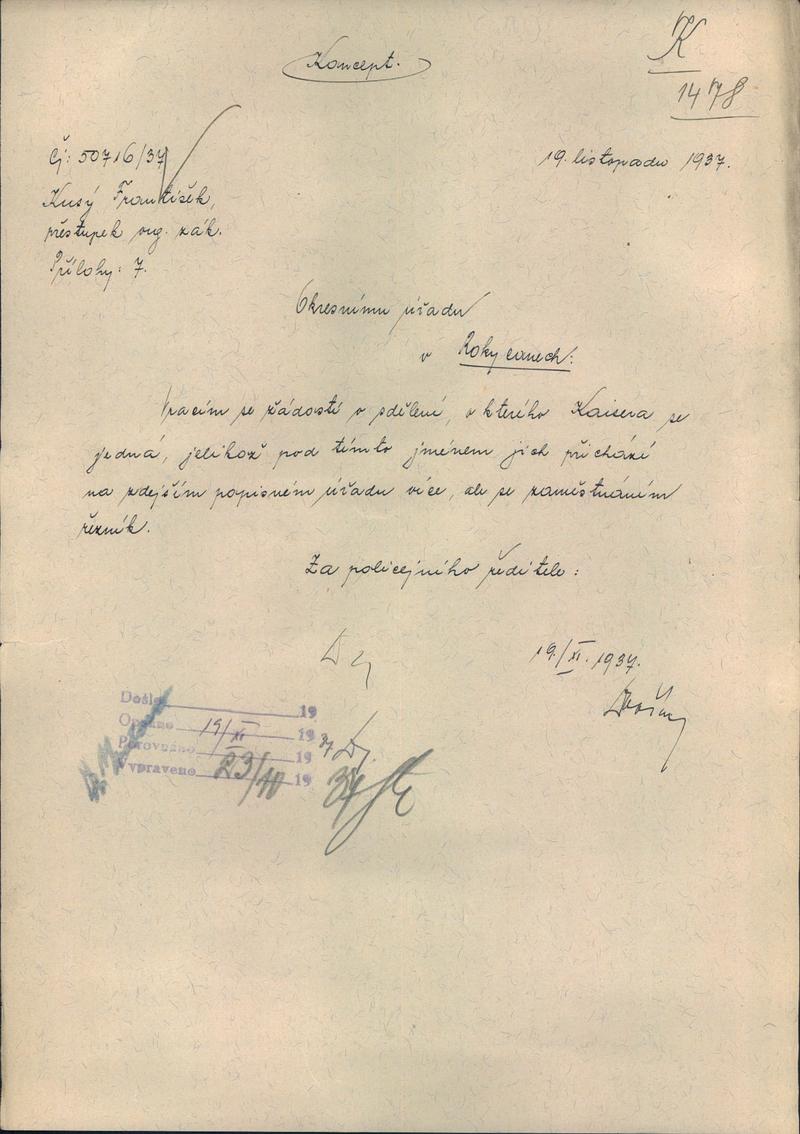 Koncept.
K
1478
Čj: 50716/37
19. listopadu 1937.
Kusý František,
přestupek org. zák.
Přílohy: 7.
Okresnímu úřadu
v Rokycanech:
Vracím se žádostí o sdělení, o kterého Kaisera se
jedná, jelikož pod tímto jménem jich přichází
na zdejším popisném úřadu více, ale se zaměstnáním
řezník.
Za policejního ředitele:
19./XI. 1937.
Došlo 19
Opsáno 19/XI 19 37
Porovnáno 19
Vypraveno 23/ 19 37